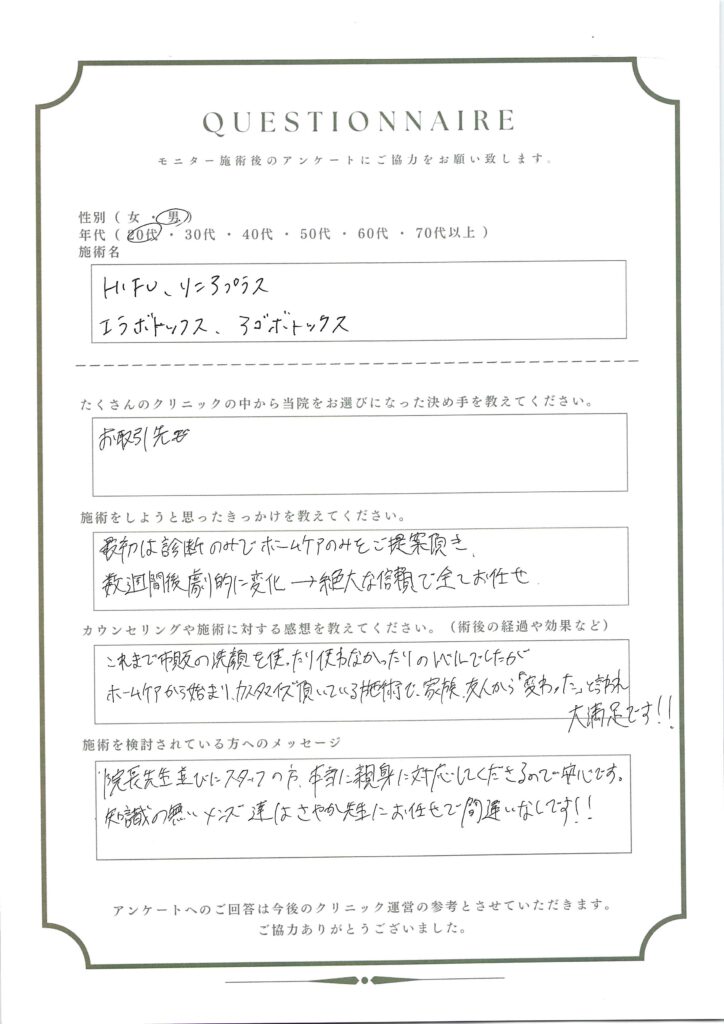 QUESTIONNAIRE
モニター施術後のアンケートにご協力をお願い致します。
性別 ( 女 ・ 男 )
年代 ( 20代 ・ 30代 ・ 40代 ・ 50代 ・ 60代 ・ 70代以上 )
施術名
HIFU、リニアプラス
エラボトックス、アゴボトックス
たくさんのクリニックの中から当院をお選びになった決め手を教えてください。
お取引先
施術をしようと思ったきっかけを教えてください。
最初は診断のみでホームケアのみをご提案頂き、
数週間後劇的に変化→絶大な信頼で全てお任せ
カウンセリングや施術に対する感想を教えてください。(術後の経過や効果など)
これまで市販の洗顔を使ったり使わなかったりのレベルでしたが
ホームケアから始まり、カスタマイズ頂いている施術で、家族、友人から「変わった」と言われ
大満足です!!
施術を検討されている方へのメッセージ
院長先生並びにスタッフの方、本当に親身に対応してくださるので安心です。
知識の無いメンズ達はさやか先生にお任せで間違いなしです!!
アンケートへのご回答は今後のクリニック運営の参考とさせていただきます。
ご協力ありがとうございました。